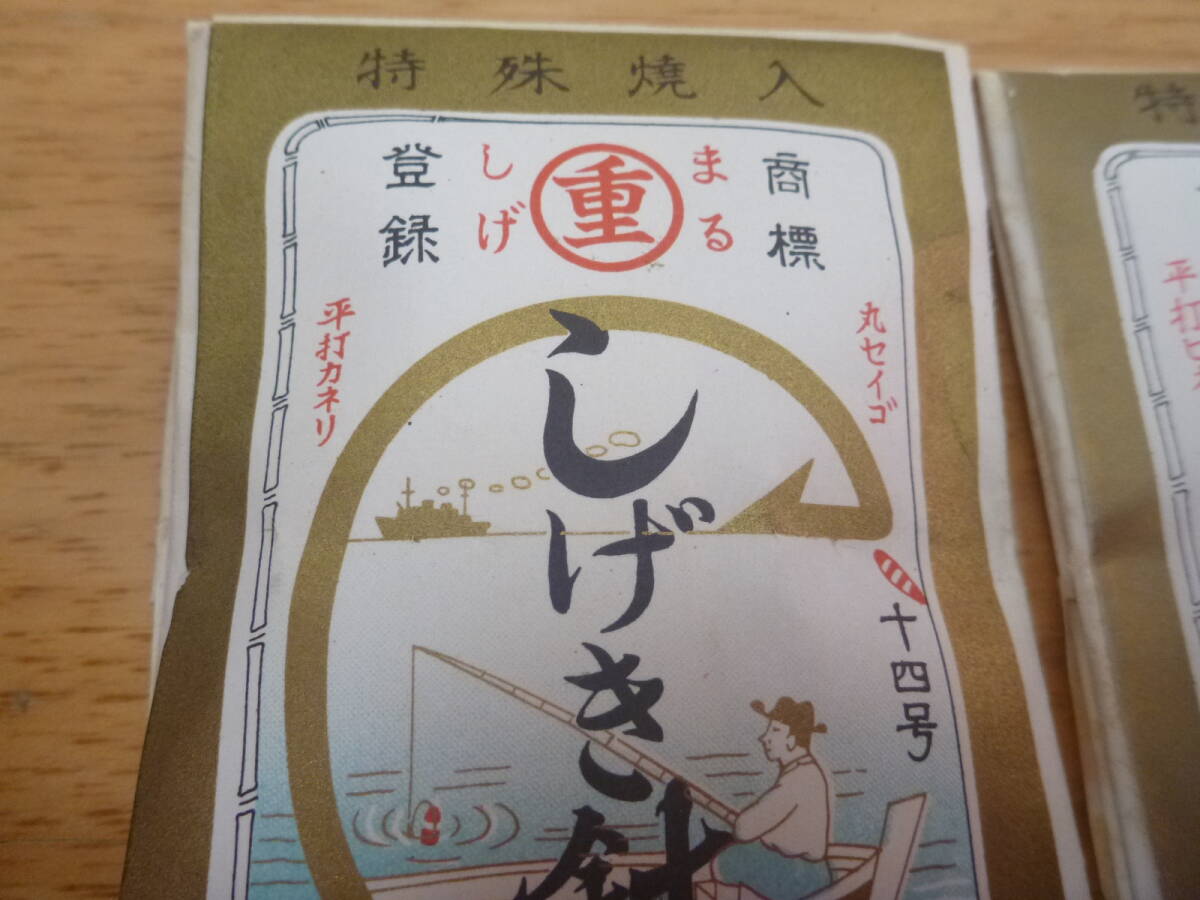 特殊燒入
商標
まる
重
しげ
登録
丸セイゴ
十四号
しげき針
平打カネリ
特
平打